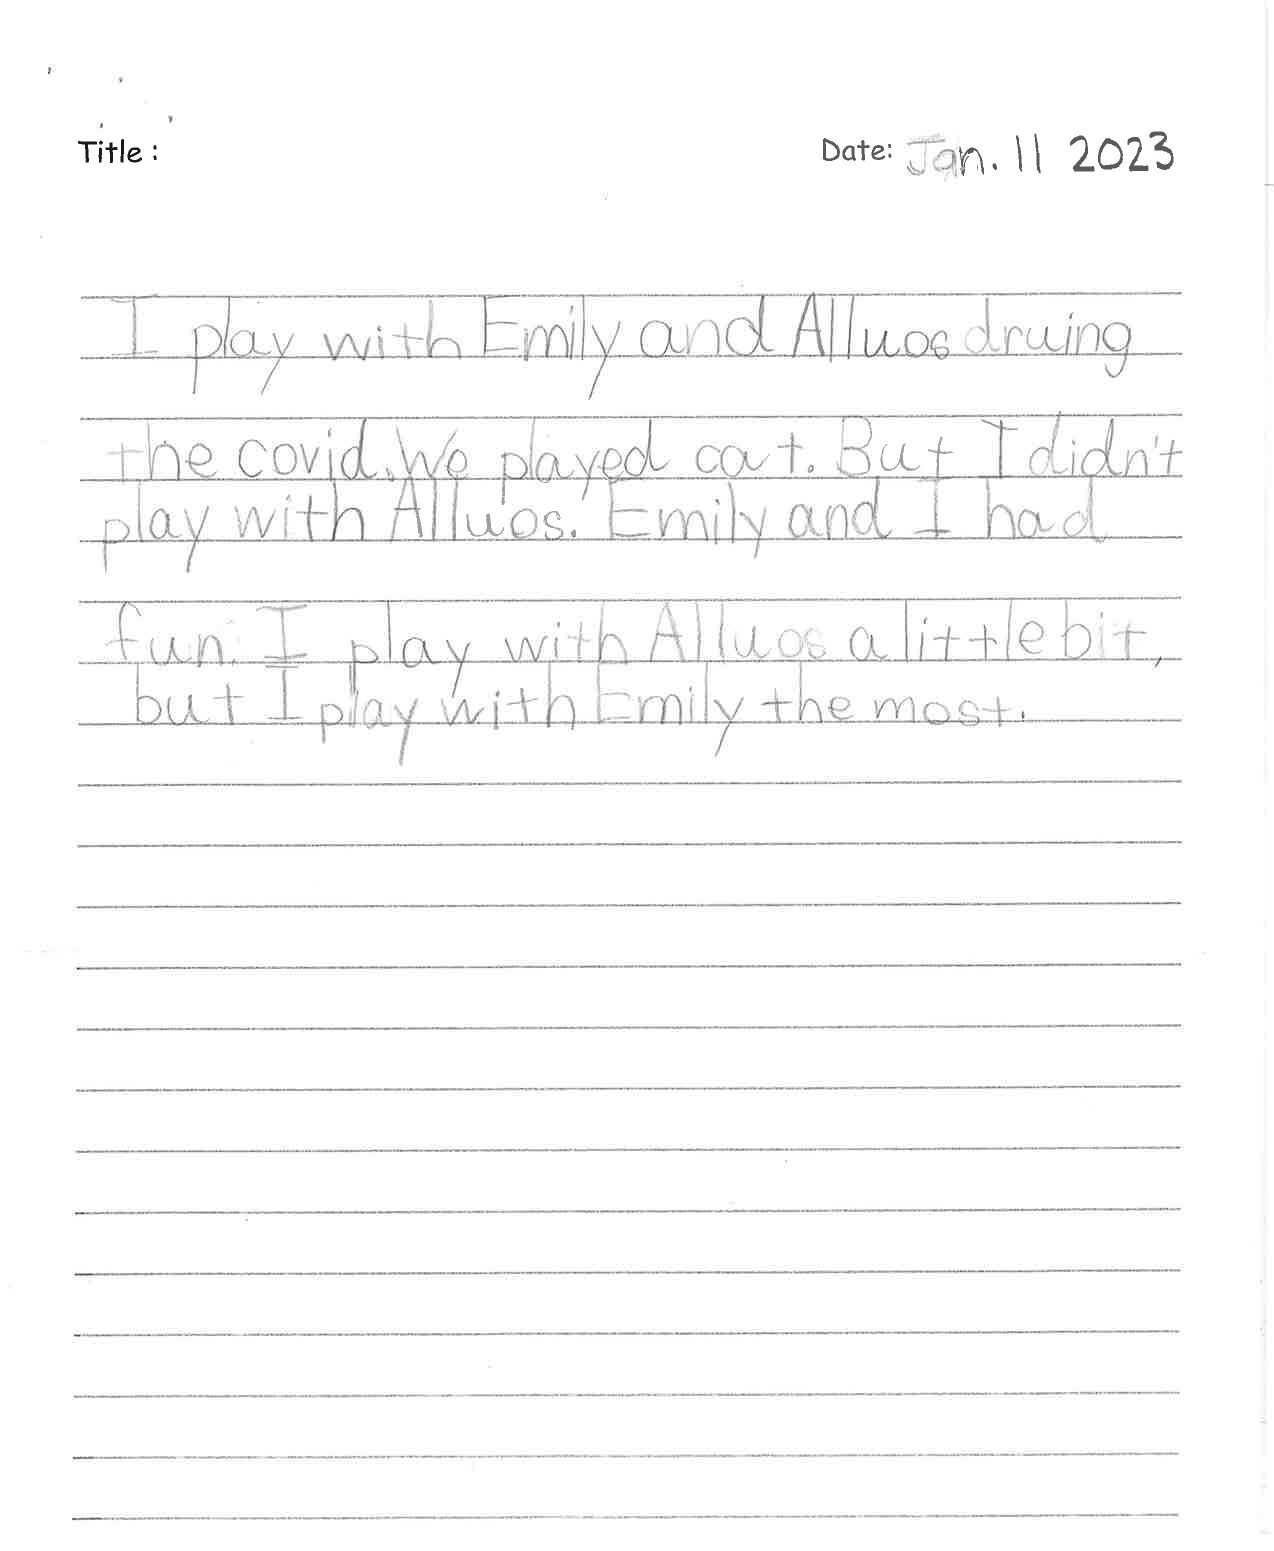 Title :
Date: Jan. 11 2023
I play with Emily and Alluos druing
the covid. We played cat. But I didn't
play with Alluos. Emily and I had
fun. I play with Alluos a little bit,
but I play with Emily the most.